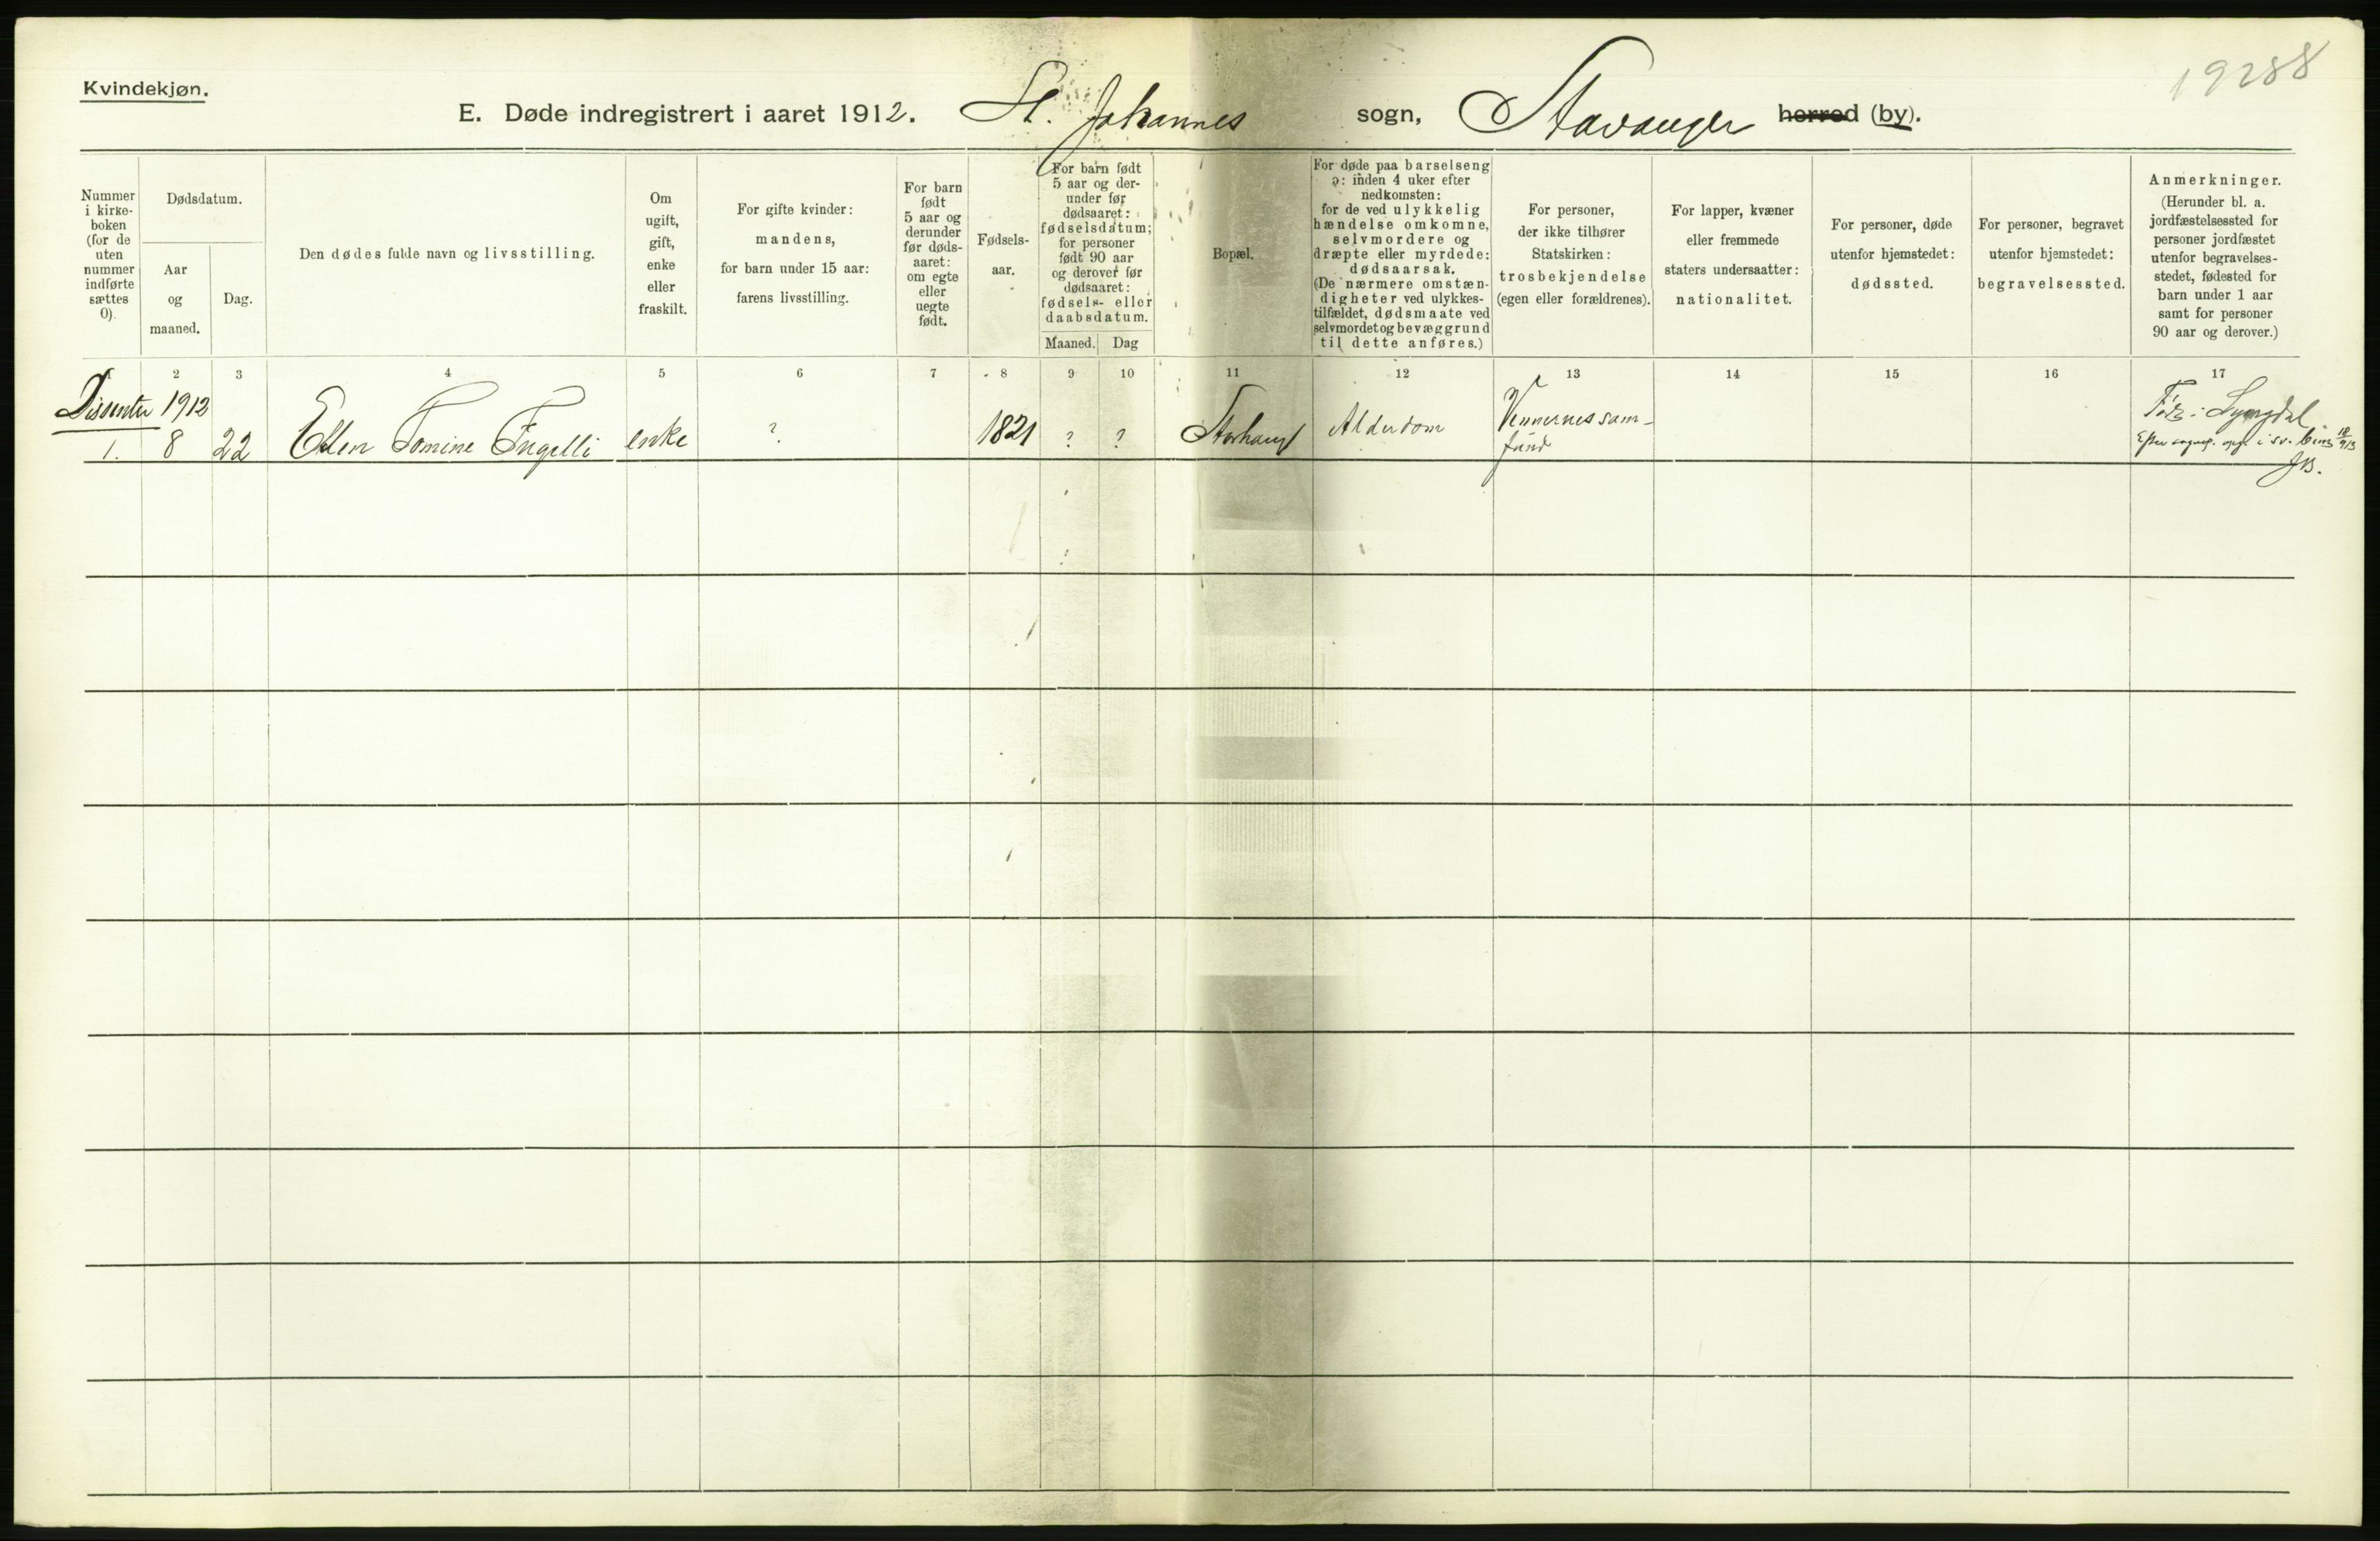 19288
Kvindekjøn.
E. Døde indregistrert i aaret 1912. St. Johannes sogn, Stavanger herred (by).
Nummer
i kirke-
boken
(for de
uten
nummer
indførte
sættes
0).
Dødsdatum.
Aar
og
maaned.
Dag.
Den dødes fulde navn og livsstilling.
Om
ugift,
gift,
enke
eller
fraskilt.
For gifte kvinder:
mandens,
for barn under 15 aar:
farens livsstilling.
For barn
født
5 aar og
derunder
før døds-
aaret:
om egte
eller
uegte
født.
Fødsels-
aar.
For barn født
5 aar og der-
under før
dødsaaret:
fødselsdatum;
for personer
født 90 aar
og derover før
dødsaaret:
fødsels- eller
daabsdatum.
Maaned. Dag
Bopæl.
For døde paa barselseng
ɔ: inden 4 uker efter
nedkomsten:
for de ved ulykkelig
hændelse omkomne,
selvmordere og
dræpte eller myrdede:
dødsaarsak.
(De nærmere omstæn-
digheter ved ulykkes-
tilfældet, dødsmaate ved
selvmordet og bevæggrund
til dette anføres.)
For personer,
der ikke tilhører
Statskirken:
trosbekjendelse
(egen eller forældrenes).
For lapper, kvæner
eller fremmede
staters undersaatter:
nationalitet.
For personer, døde
utenfor hjemstedet:
dødssted.
For personer, begravet
utenfor hjemstedet:
begravelsessted.
Anmerkninger.
(Herunder bl. a.
jordfæstelsessted for
personer jordfæstet
utenfor begravelses-
stedet, fødested for
barn under 1 aar
samt for personer
90 aar og derover.)
1 2 3 4 5 6 7 8 9 10 11 12 13 14 15 16 17
Dissenter 1912
1. 8 22 Ellen Tomine Ingelli enke ? 1821 ? ? Storhaug Alderdom Vennernes sam-
fund
Fød i Lyngdal
Efter sognep. opg. i sv. 18/9 13
JB.